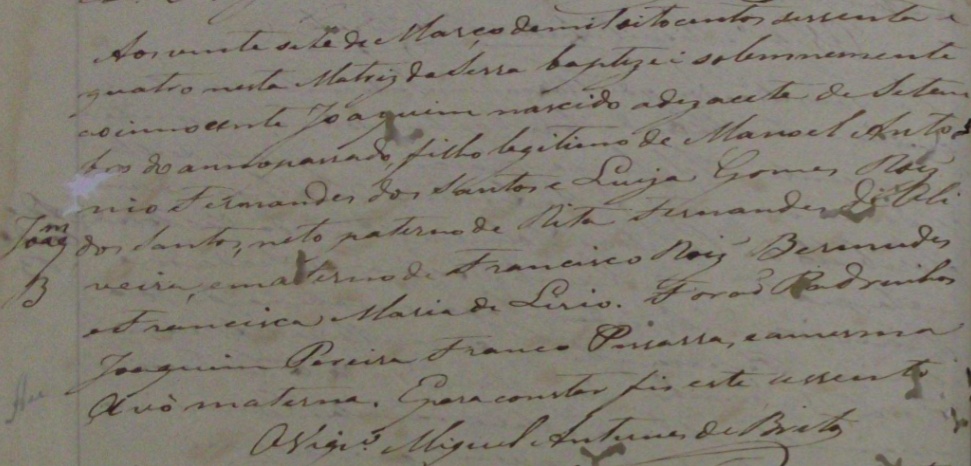 Aos vinte sete de Março de mil oitocentos sessenta e
quatro nesta Matriz da Serra baptizei solemnemente
ao innocente Joaquim nascido a dezacete de Setem
bro do anno passado, filho legitimo de Manoel Anto
nio Fernandes dos Santos e Luiza Gomes Roiz
dos Santos, neto paterno de Rita Fernandes de Oli
veira, e materno de Francisco Roiz Bermudes
e Francisca Maria de Lirio. Forão Padrinhos
Joaquim Pereira Franco Pissarra, e a mesma
Avò materna. E para constar fis este assento
O Vigr.o Miguel Antunes de Brito
Joaqm
B